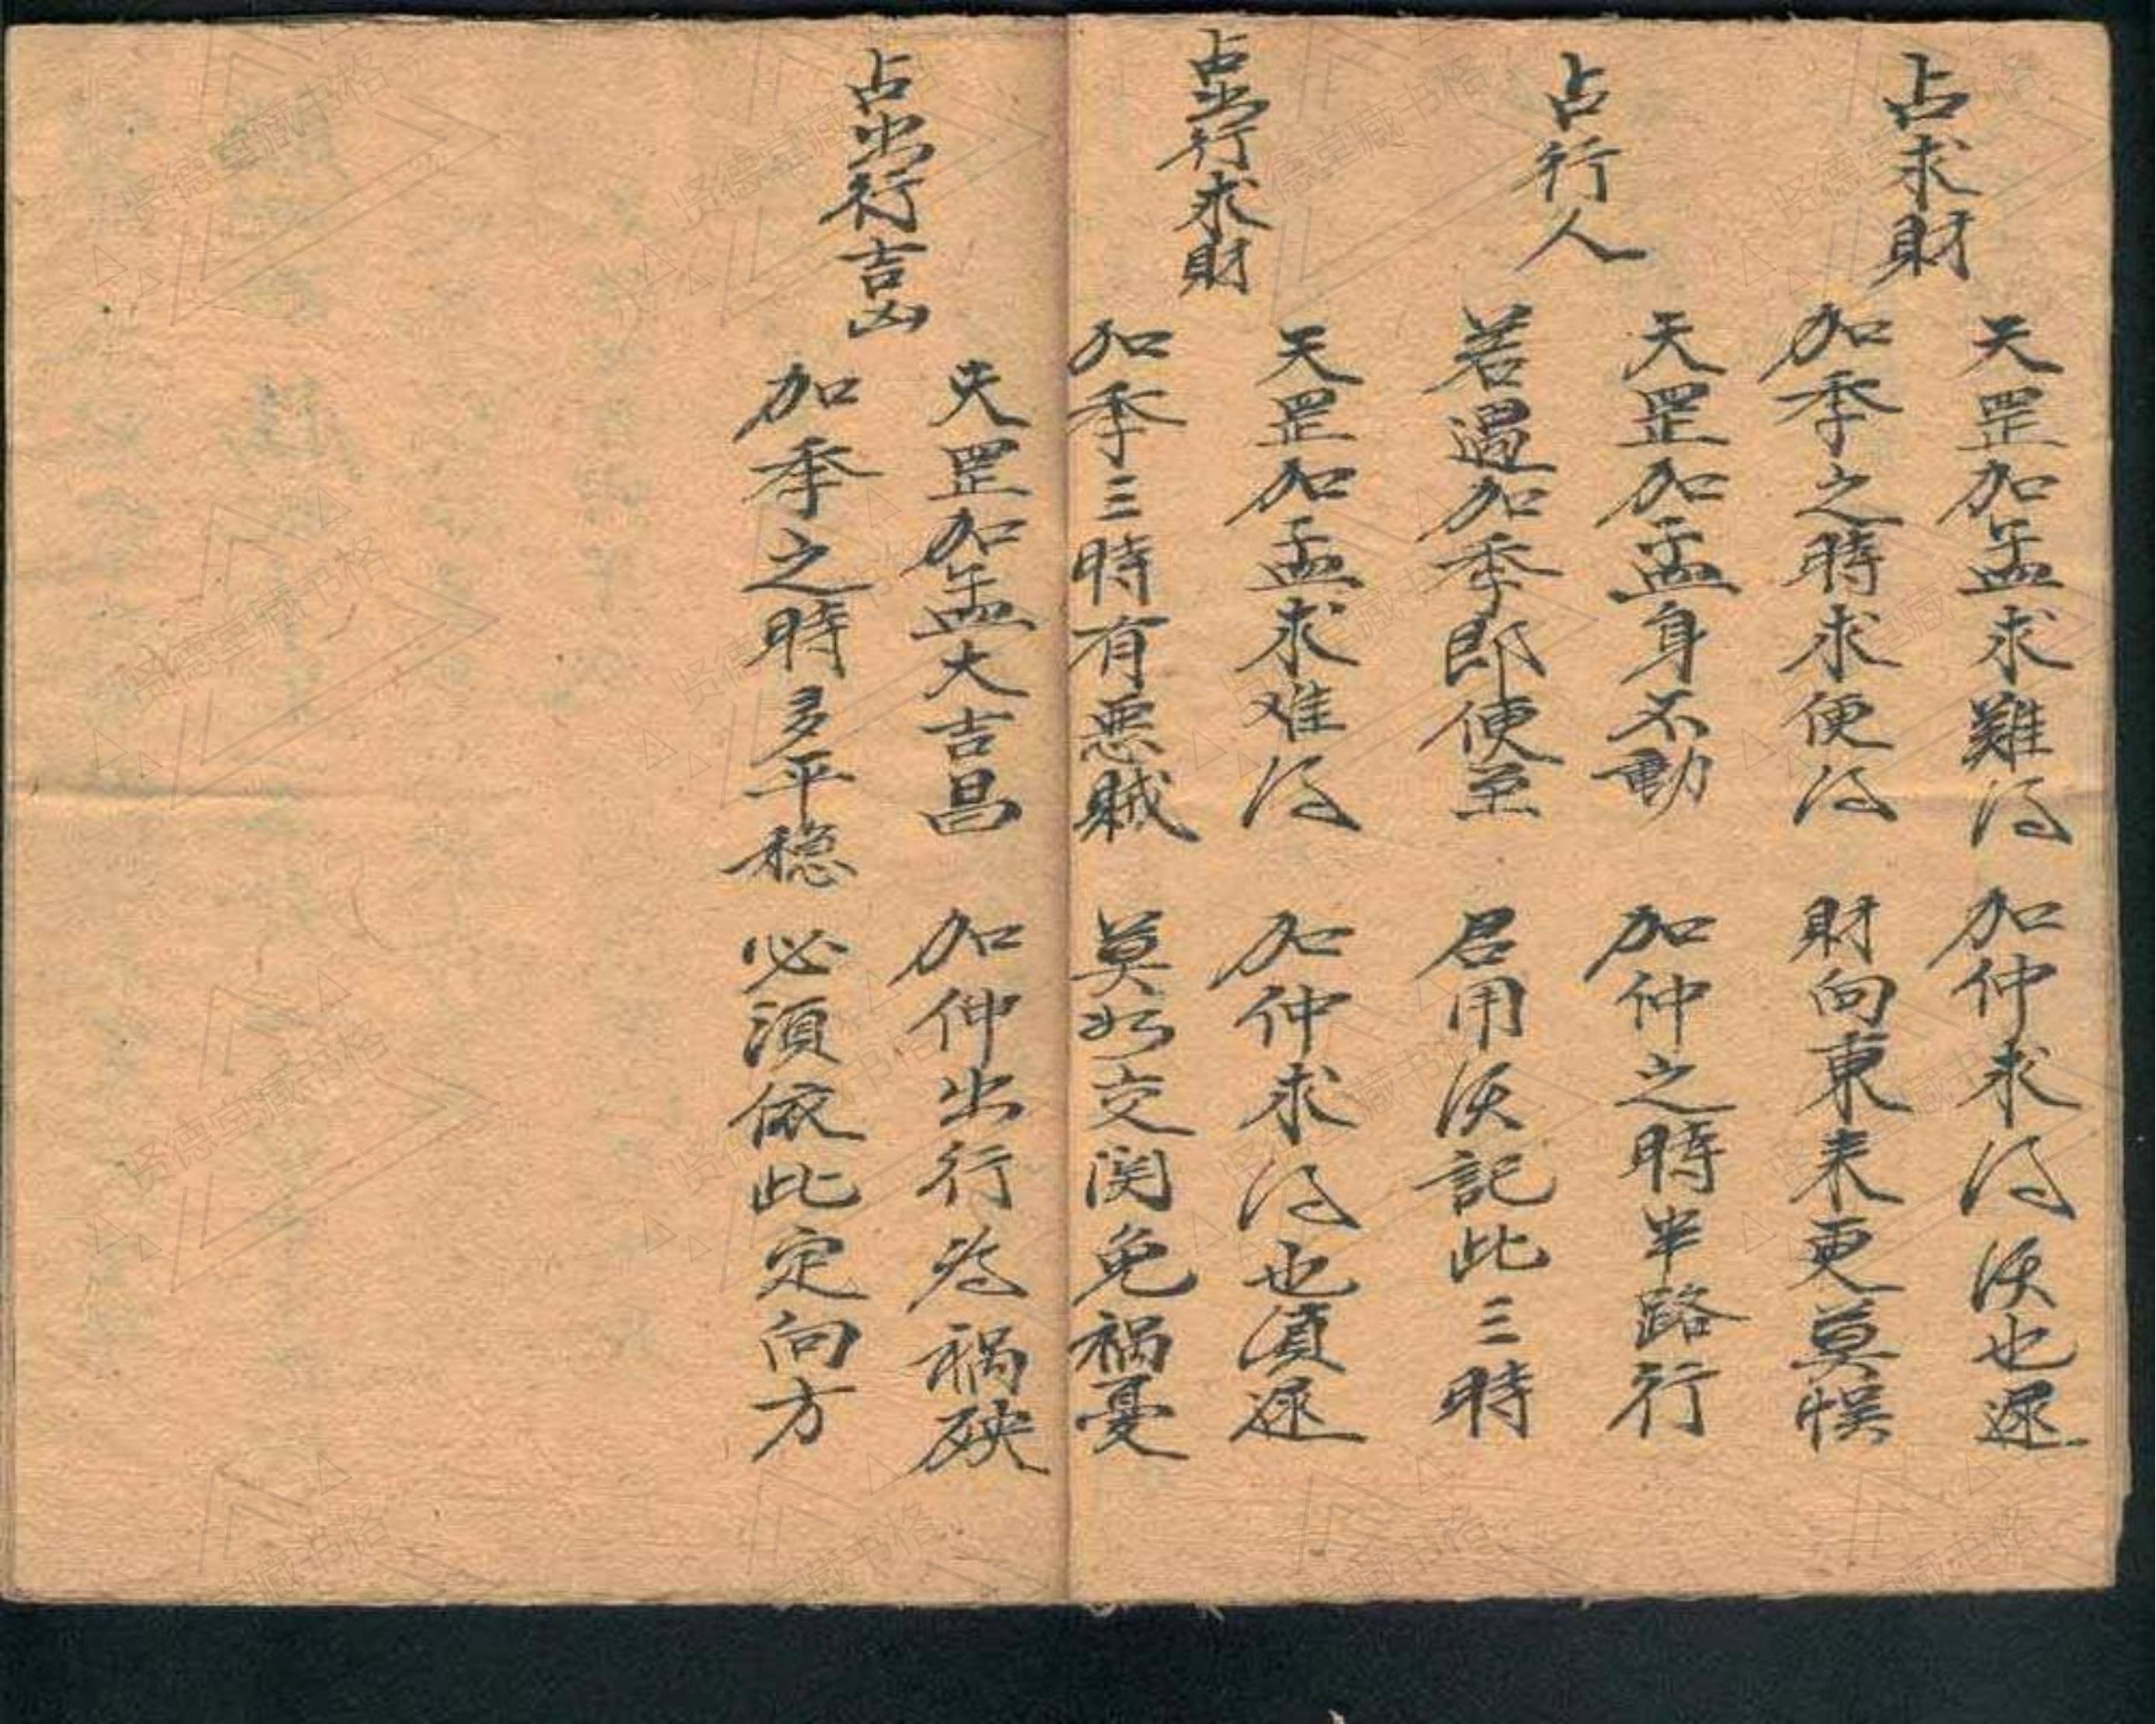 占求財
天罡加孟求難得　加仲求得沃也遅
加季之時求便得　財向東来更莫悮
占行人
天罡加孟身不動　加仲之時半路行
若遇加季即便至　君用沃記此三時
占出行求財
天罡加孟求难得　加仲求得也須遅
加季三時有悪賊　莫於交関免禍憂
占出行吉凶
天罡加孟大吉昌　加仲出行为禍殃
加季之時多平穏　必須依此定向方
贤德堂藏书格